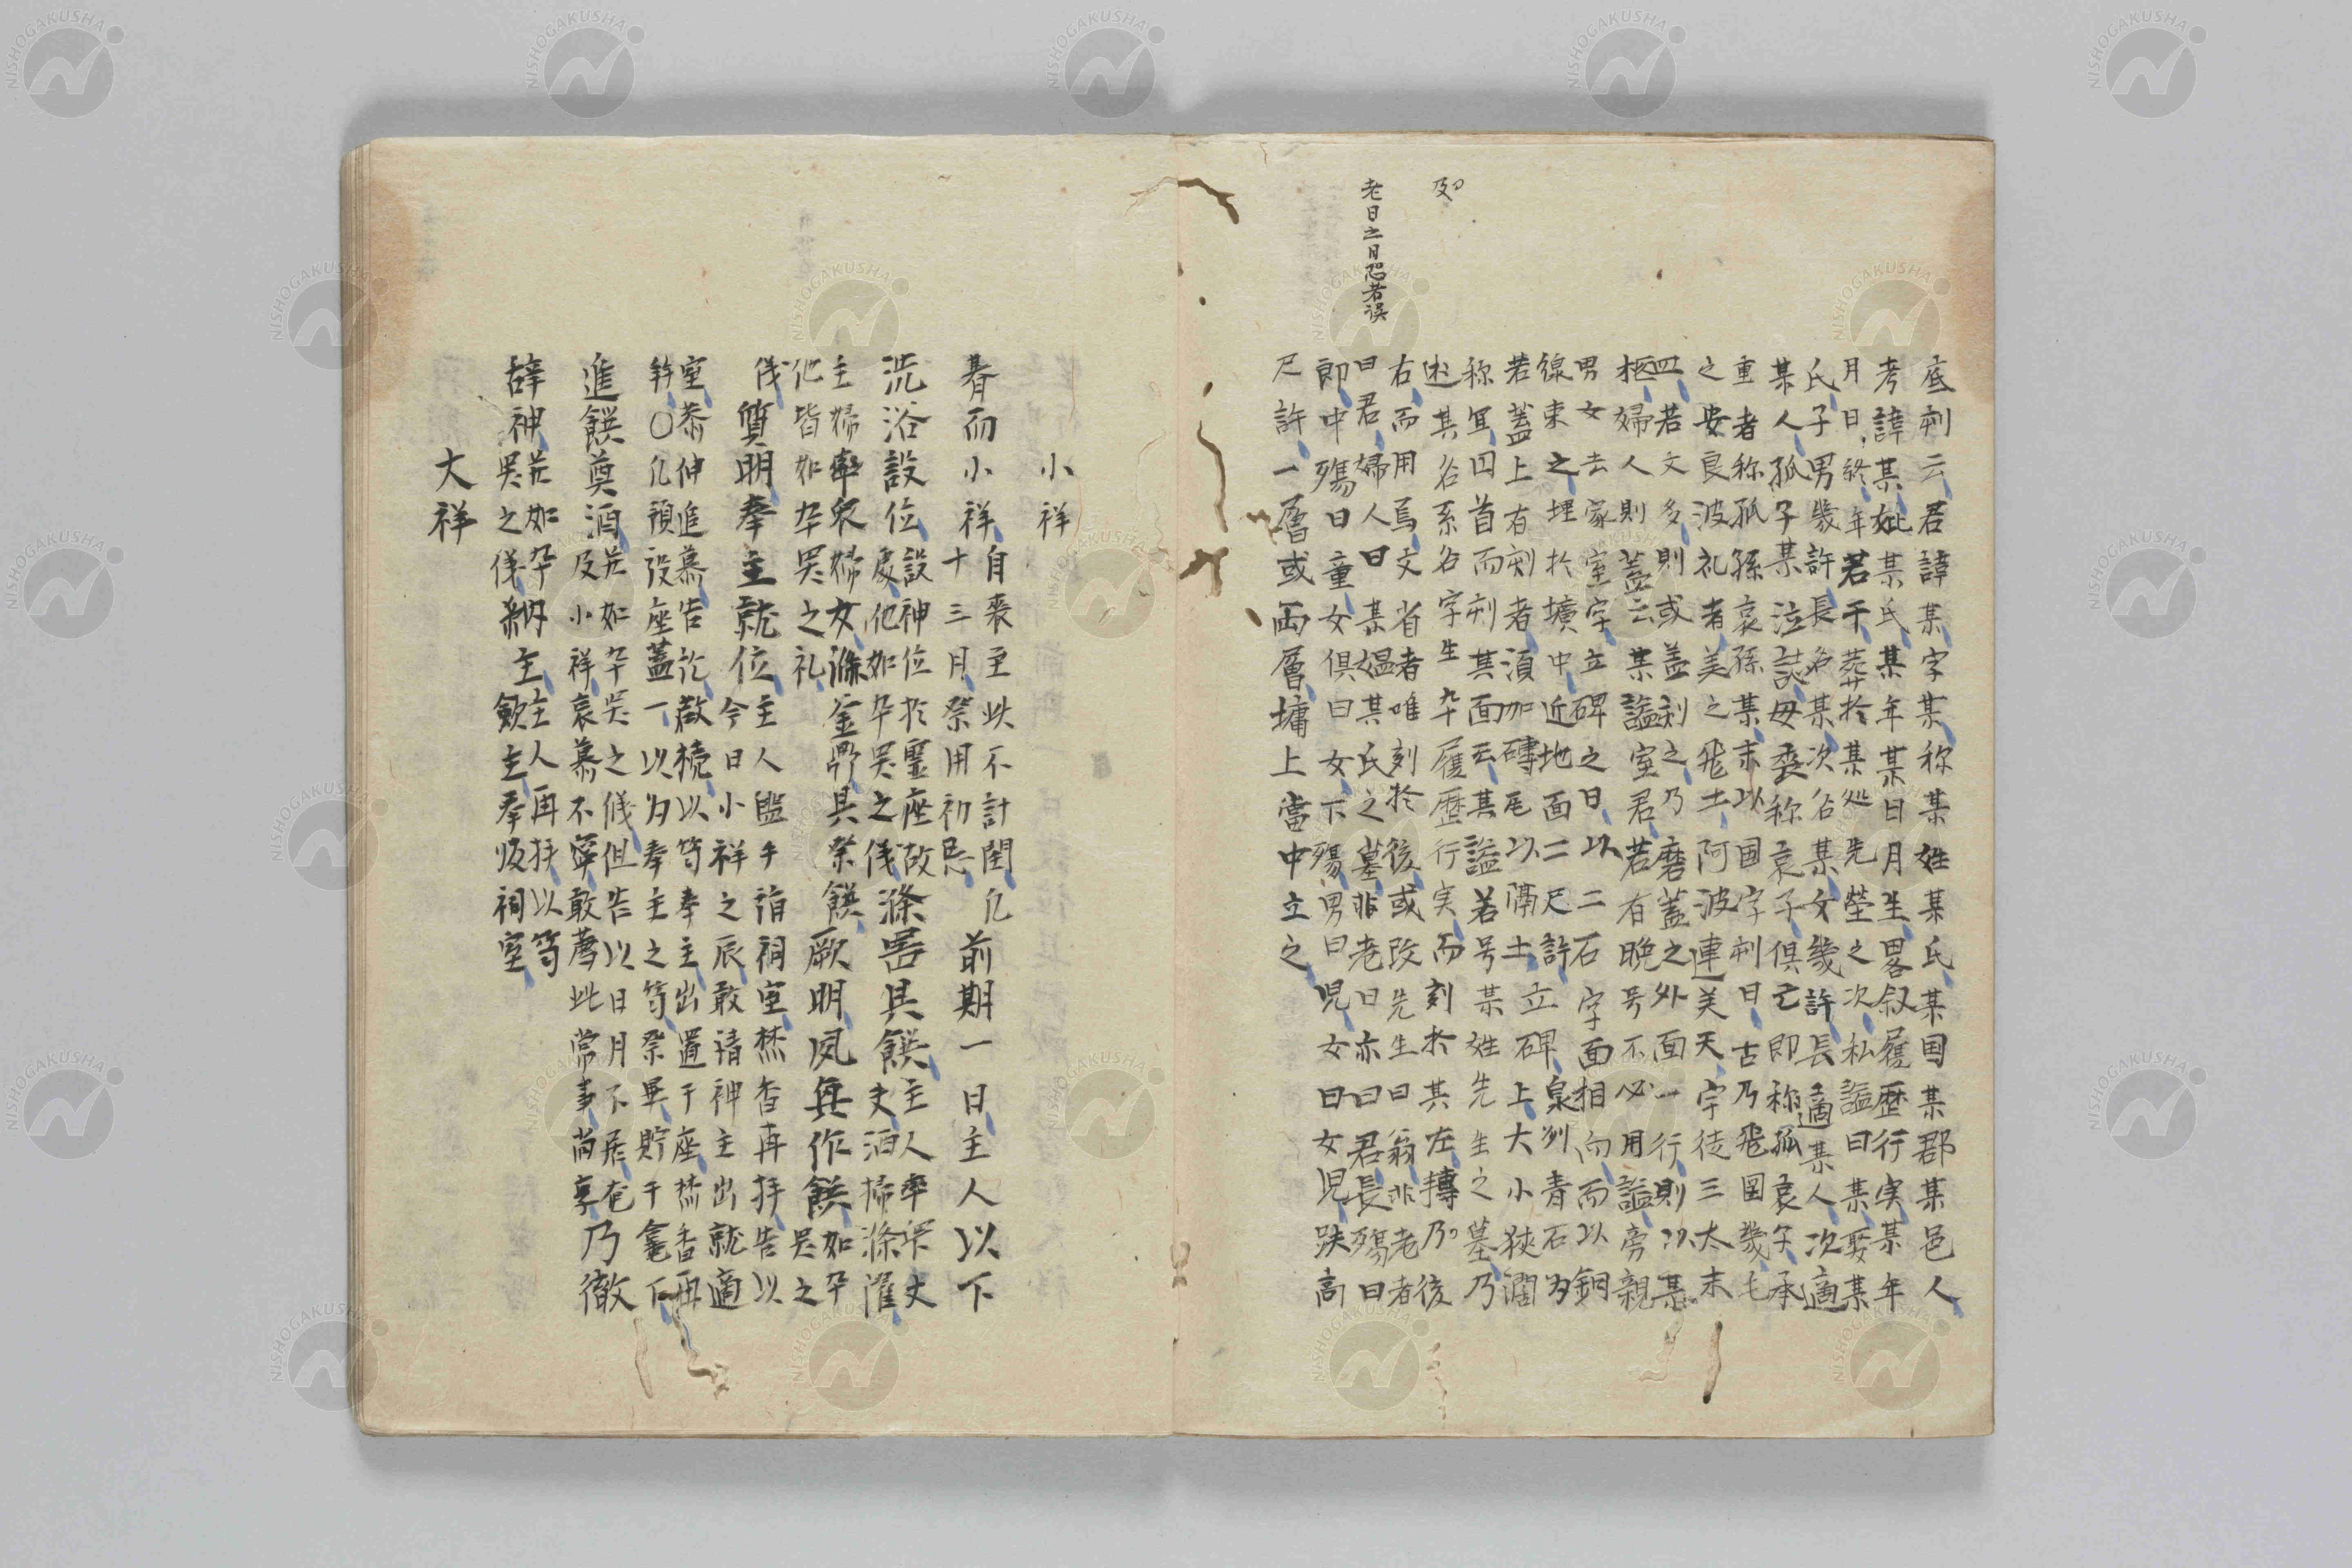 底刺云君諱某字某称某姓某氏某国某郡某邑人
考諱某妣某氏某年某日月生畧叙履歴行実某年
月日終年若干葬於某処先塋之次私謚曰某娶某
氏子男幾許長名某次名某女幾許長適某人次適
某人孤子某泣誌母喪称哀子俱亡即称孤哀子承
重者称孤孫哀孫某末以国字刺曰古乃飛国幾七
之安良波礼者美之飛土阿波連美天宇徒三太末
四若文多則或蓋刺之乃磨蓋之外面一行則以某
柩婦人則蓋云某謚室君若有晩号不必用謚旁親
男女去家室字立碑之日以二石字面相向而以銅
線束之埋於壙中近地面二尺許泉列青石為
若蓋上有刻者須加磚毛以隔土立碑上大小狭濶
称冝因首而刺其面云某謚若号某姓先生之墓乃
述其名系名字生卒履歴行実而刻於其左轉乃後
右而用焉文省者唯刻於後或改先生曰翁非老者
曰君婦人曰某媼某氏之墓非老曰亦曰君長殤曰
即中殤曰童女俱曰女下殤男曰児女曰女児趺高
尺許一層或両層墉上當中立之
及
老日之日恐若誤
小祥
朞而小祥自喪至此不計閏凡
十三月祭用初忌前期一日主人以下
洗浴設位設神位於霊座故
處他如卒哭之儀滌器具饌主人率衆丈
夫洒掃滌濯
主婦率衆婦女滌釜鼎具祭饌厥明夙興作饌如卒
哭之
他皆如卒哭之礼
儀質明奉主就位主人盥手詣祠室焚香再拝告以
今日小祥之辰敢請神主出就適
室恭伸追慕告訖啟櫝以笥奉主出置于座焚香再
拜○凡預設座蓋一以為奉主之笥祭畢貯于龕下
進饌奠酒並如卒哭之儀但告以日月不居奄
及小祥哀慕不寧敢薦此常事尚享乃徹
辞神並如卒
哭之儀納主主人再拝以笥
歛主奉皈祠室
大祥